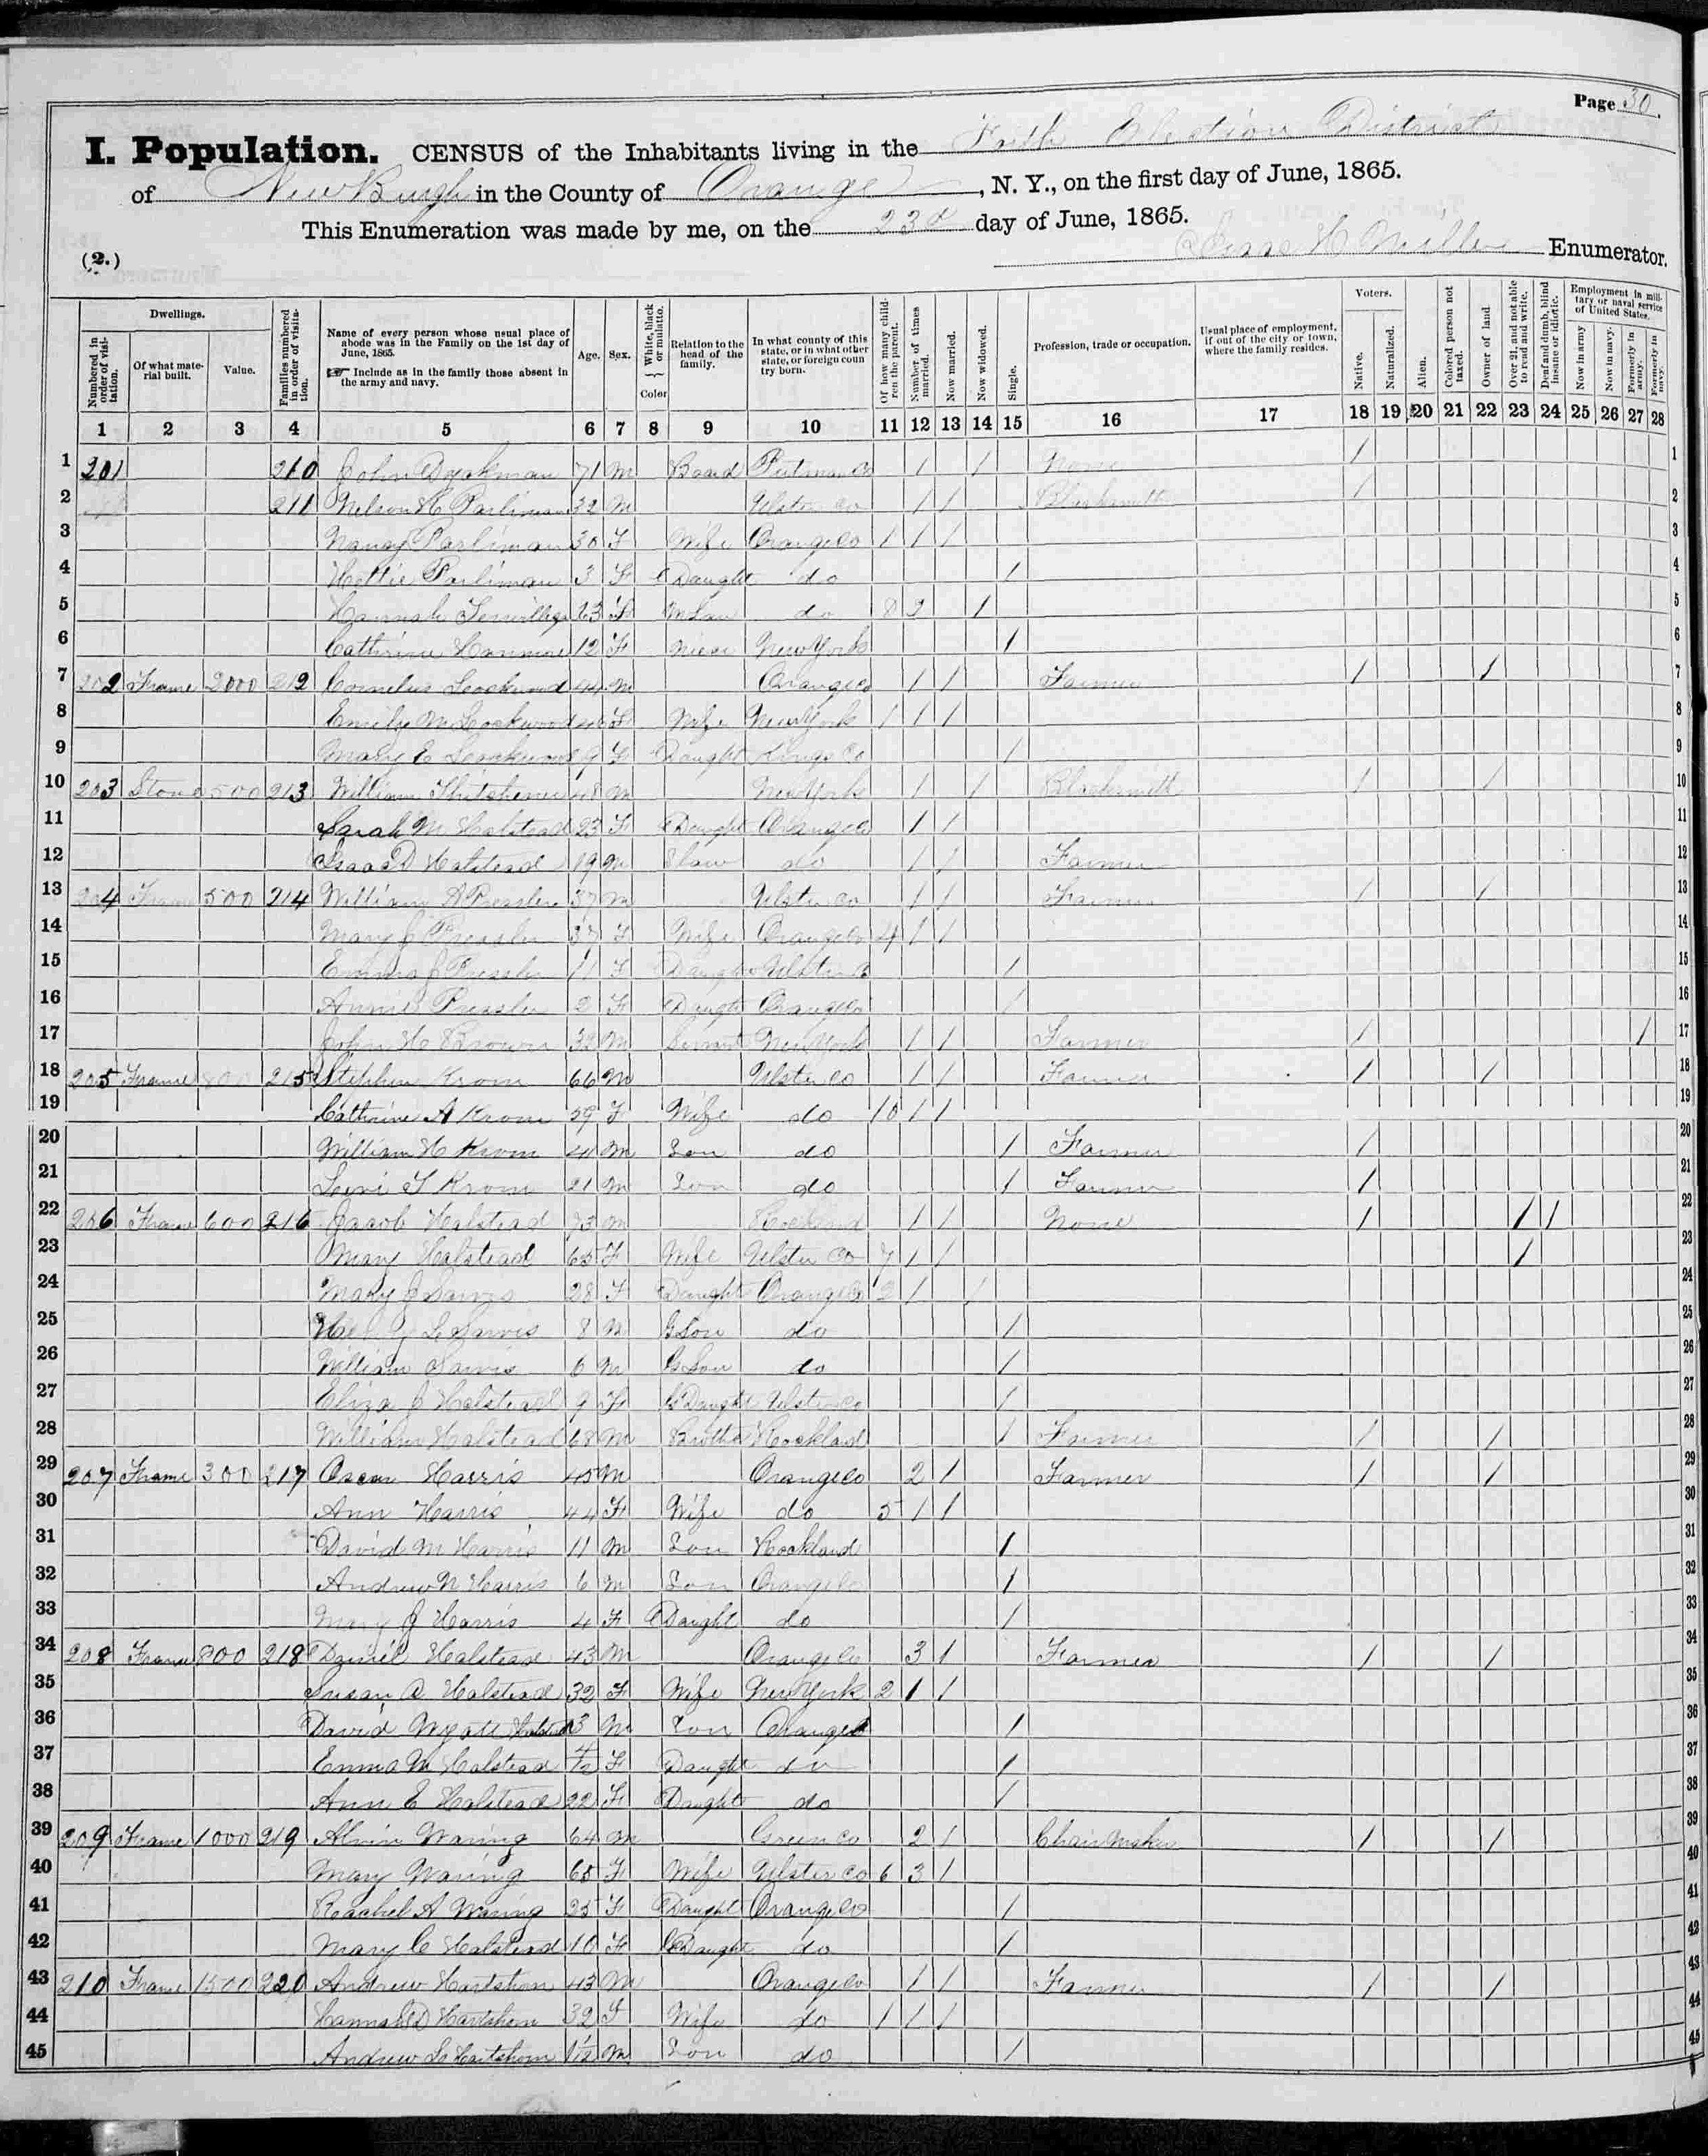 Page 30.
I. Population. CENSUS of the Inhabitants living in the Election District
of New Burgh in the County of Orange, N. Y., on the first day of June, 1865.
This Enumeration was made by me, on the 23d day of June, 1865.
(2.) H Miller Enumerator.
Dwellings.
Numbered in order of visitation.
Of what material built.
Value.
Families numbered in order of visitation.
Name of every person whose usual place of abode was in the Family on the 1st day of June, 1865.
☞ Include as in the family those absent in the army and navy.
Age.
Sex.
White, black or mulatto. Color
Relation to the head of the family.
In what county of this state, or in what other state, or foreign coun try born.
Of how many children the parent.
Number of times married.
Now married.
Now widowed.
Single.
Profession, trade or occupation.
Usual place of employment, if out of the city or town, where the family resides.
Voters.
Native.
Naturalized.
Alien.
Colored person not taxed.
Owner of land
Over 21, and not able to read and write.
Deaf and dumb, blind insane or idiotic.
Employment in military or naval service of United States.
Now in army
Now in navy.
Formerly in army.
Formerly in navy.
1 2 3 4 5 6 7 8 9 10 11 12 13 14 15 16 17 18 19 20 21 22 23 24 25 26 27 28
1 201 210 John 71 M Board Putnam Co 1 1 None 1 1
2 211 Nelson H Parliman 32 M Ulster Co 1 1 Blacksmith 1 2
3 Nancy Parliman 30 F Wife Orange Co 1 1 1 3
4 Hettie Parliman 3 F Daught do 1 4
5 Hannah 63 F M Law do 8 2 1 5
6 Cathrine 12 F Niece New York 1 6
7 202 Frame 2000 212 Cornelius Lockwood 44 M Orange Co 1 1 Farmer 1 1 7
8 Emily M Lockwood 40 F Wife New York 1 1 1 8
9 Mary E Lockwood 9 F Daught Kings Co 1 9
10 203 Stone 500 213 William 48 M New York 1 1 Blacksmith 1 1 10
11 Sarah M Halstead 23 F Daught Orange Co 1 1 11
12 Isaac D Halstead 19 M S law do 1 1 Farmer 12
13 204 Frame 500 214 William A Pressler 37 M Ulster Co 1 1 Farmer 1 1 13
14 Mary J Pressler 37 F Wife Orange Co 4 1 1 14
15 Emma J Pressler 11 F Daughter Ulster Co 1 15
16 Annie Pressler 2 F Daught Orange Co 1 16
17 John H Brown 32 M Servant New York 1 1 Farmer 1 1 17
18 205 Frame 800 215 Stephen Krom 66 M Ulster Co 1 1 Farmer 1 1 18
19 Cathrine A Krom 59 F Wife do 10 1 1 19
20 William H Krom 41 M Son do 1 Farmer 1 20
21 Levi T Krom 21 M Son do 1 Farmer 1 21
22 206 Frame 600 216 Jacob Halstead 73 M Rockland 1 1 None 1 1 1 22
23 Mary Halstead 65 F Wife Ulster Co 7 1 1 1 23
24 Mary J 28 F Daught Orange Co 2 1 1 24
25 8 M G Son do 1 25
26 William 6 M G Son do 1 26
27 Eliza J Halstead 9 F G Daught Ulster Co 1 27
28 William Halstead 68 M Brother Rockland 1 Farmer 1 1 28
29 207 Frame 300 217 Oscar Harris 45 M Orange Co 2 1 Farmer 1 1 29
30 Ann Harris 44 F Wife do 5 1 1 30
31 David M Harris 11 M Son Rockland 1 31
32 Andrew N Harris 6 M Son Orange Co 1 32
33 Mary J Harris 4 F Daught do 1 33
34 208 Frame 800 218 Daniel Halstead 43 M Orange Co 3 1 Farmer 1 1 34
35 Susan A Halstead 32 F Wife New York 2 1 1 35
36 David Wyatt Halstead 3 M Son Orange Co 1 36
37 Emma M Halstead 4/12 F Daught do 1 37
38 Ann E Halstead 22 F Daught do 1 38
39 209 Frame 1000 219 Alvin Waring 64 M Green Co 2 1 Chair Maker 1 1 39
40 Mary Waring 65 F Wife Ulster Co 6 3 1 40
41 Rachel A Waring 25 F Daught Orange Co 1 41
42 Mary C Halstead 10 F G Daught do 1 42
43 210 Frame 1500 220 Andrew Hartshorn 43 M Orange Co 1 1 Farmer 1 1 43
44 Hannah D Hartshorn 32 F Wife do 1 1 1 44
45 Andrew S Hartshorn 1/12 M Son do 1 45